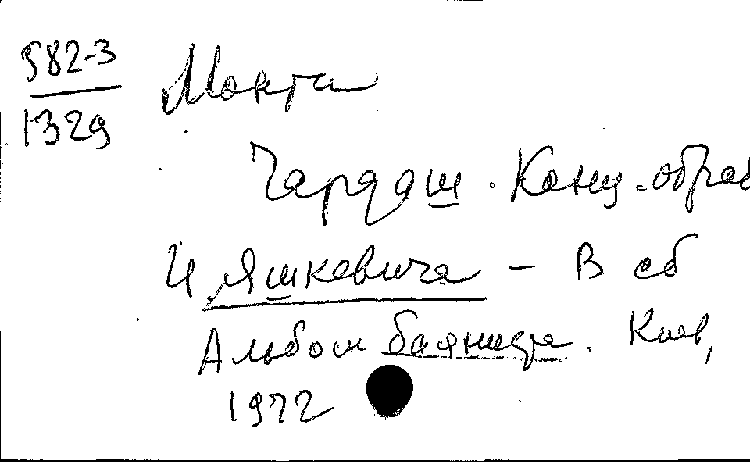 582-3
1329
Монти
Чардаш. Конц.-обраб
И Яшкевича - В сб
Альбом баяниста. Киев,
1972